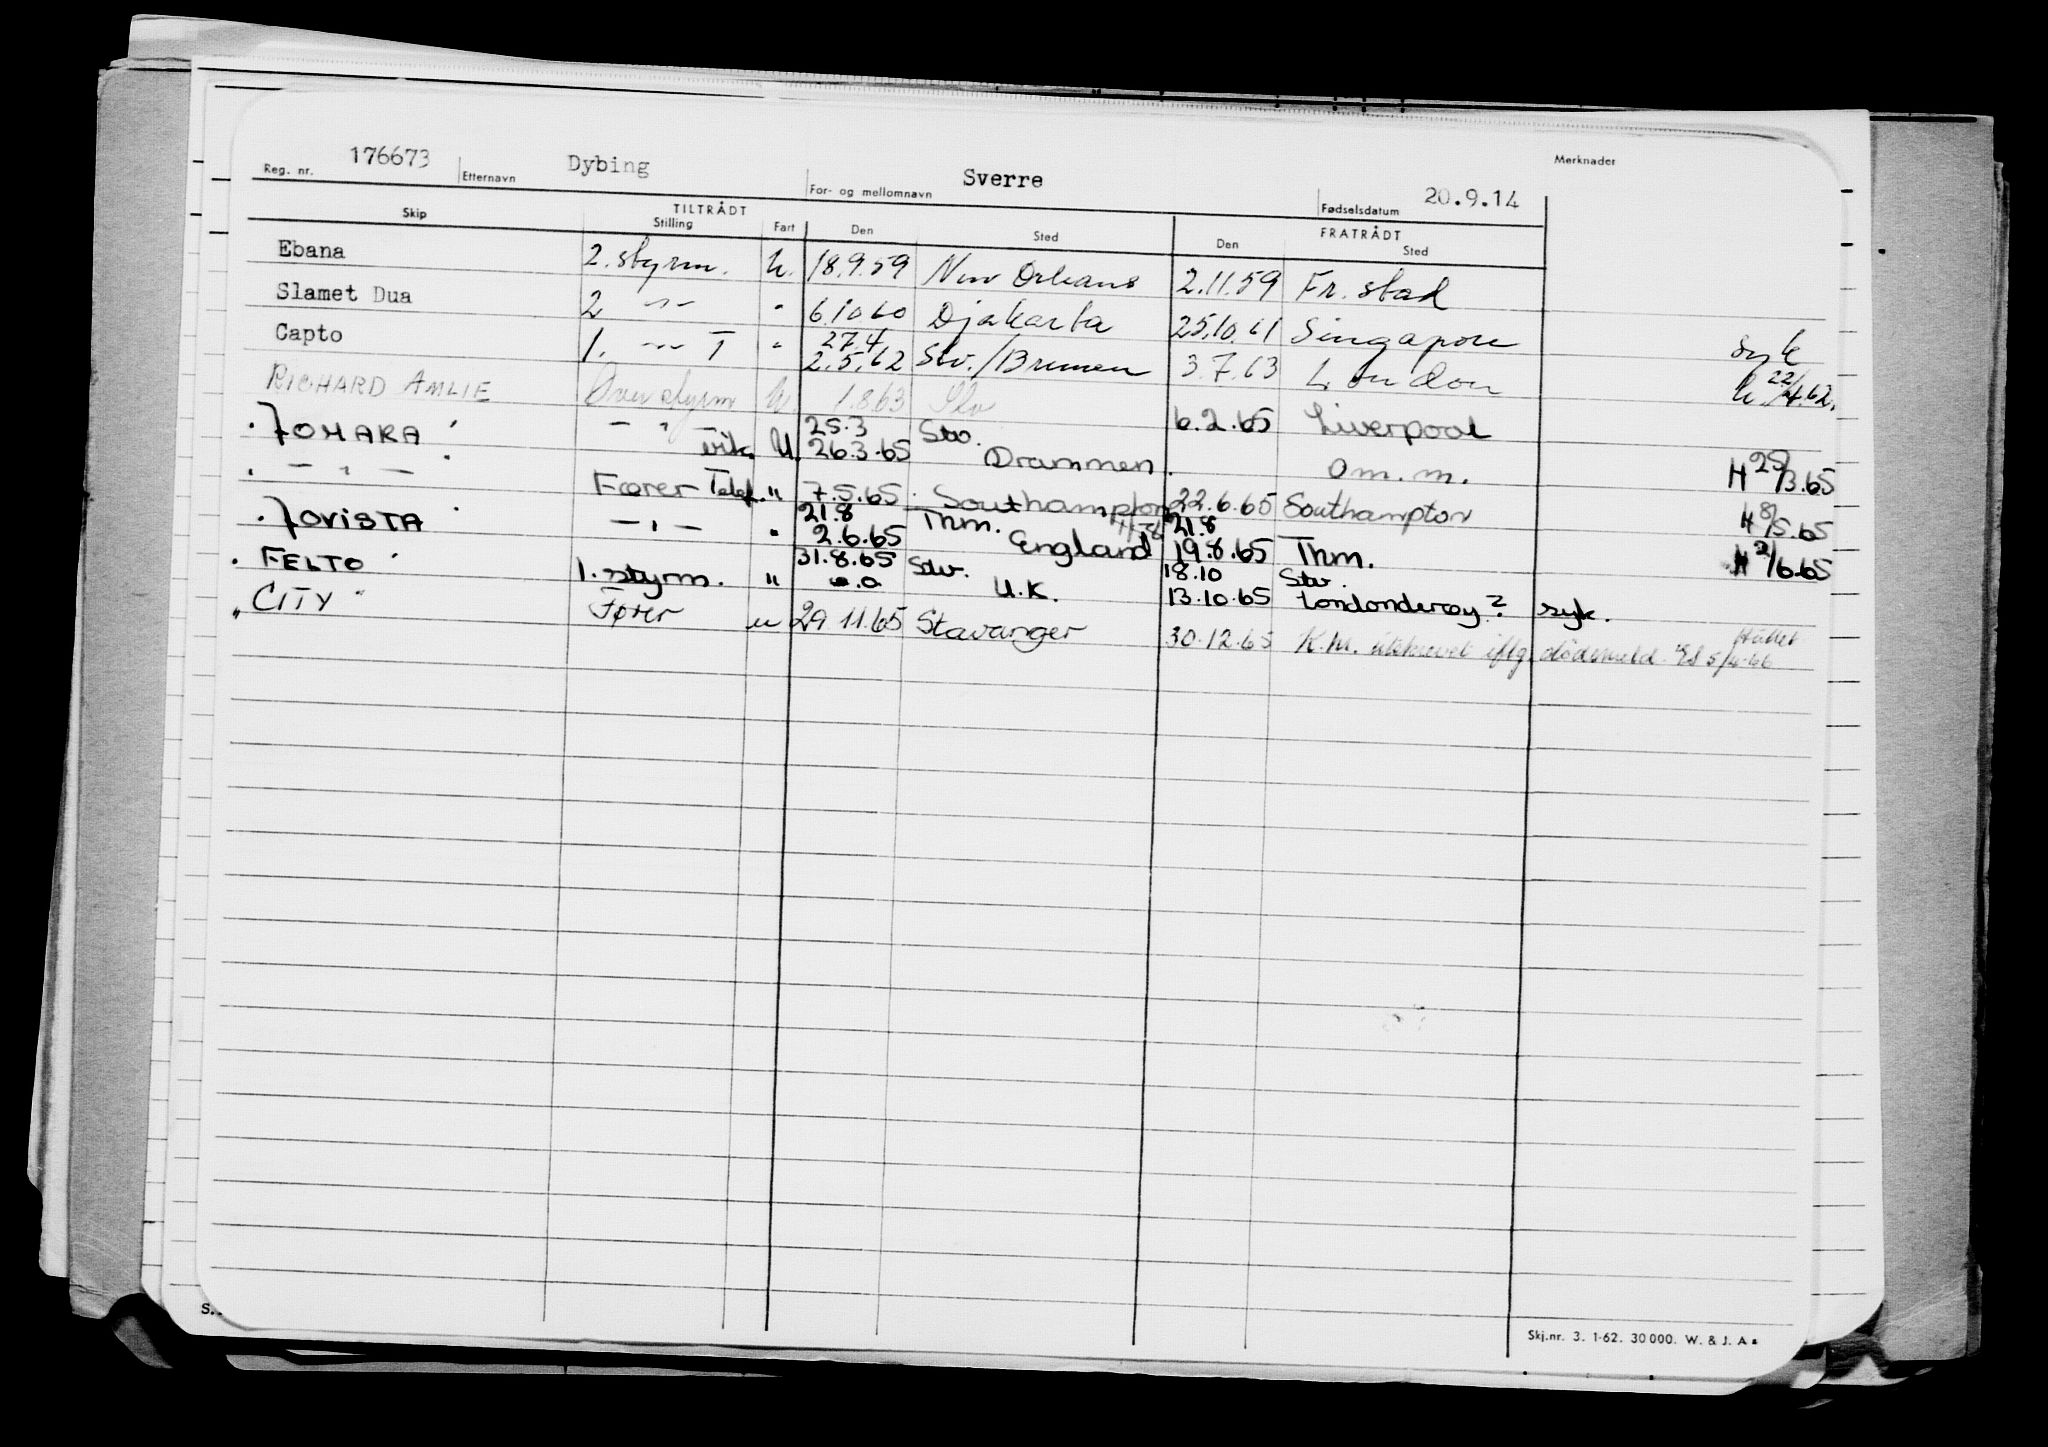 Reg. nr. 176673 Etternavn Dybing For- og mellomnavn Sverre Fødselsdatum 20.9.14 Merknader
TILTRÅDT FRATRÅDT
Skip Stilling Fart Den Sted Den Sted
Ebana 2. styrm. U. 18.9.59 New Orleans 2.11.59 Fr. stad
Slamet Dua 2 -"- " 6.10 60 Djakarta 25.10.61 Singapore syk
Capto 1. -"- T " 27.4 2.5.62 Stv./Bremen 3.7.63 London h. 22/4.62.
RICHARD AMLIE Overstyrm U. 1.8.63 Stv 6.2.65 Liverpool
"JOMARA" - " - vik. U. 25.3 26.3.65 Stv. Drammen. om.m. H 25/3.65
" - " - " Fører Telef. " 7.5.65 Southampton 22.6.65 Southampton H 8/5.65
"JOVISTA" - " - " 21.8 2.6.65 Thm. England 21.8 19.8.65 Thm. H 2/6.65
"FELTO" 1. styrm. " 31.8.65 Stv. U.K. 18.10 13.10.65 Stv. Londonderry? syk.
"CITY" Fører u 29.11.65 Stavanger 30.12.65 K.M. utskrevet iflg. dødsmeld. 5/4-66
Skj.nr. 3. 1-62. 30 000. W. & J. A s